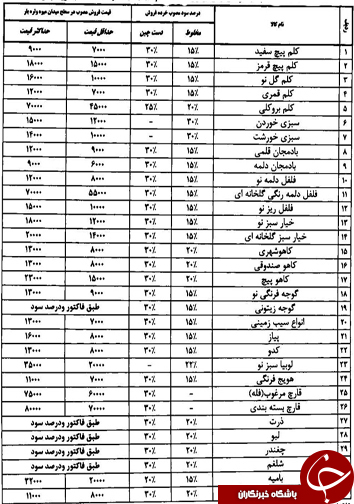 ردیف نام کالا درصد سود مصوب خرده فروشی قیمت فروش مصوب در سطح میدان میوه وتره بار
مخلوط دست چین حداقل قیمت حداکثر قیمت
۱ کلم پیچ سفید ۱۵٪ ۳۰٪ ۷۰۰۰ ۹۰۰۰
۲ کلم پیچ قرمز ۱۵٪ ۳۰٪ ۱۵۰۰۰ ۱۸۰۰۰
۳ کلم گل نو ۱۵٪ ۳۰٪ ۱۰۰۰۰ ۱۶۰۰۰
۴ کلم قمری ۱۵٪ ۳۰٪ ۷۰۰۰ ۱۲۰۰۰
۵ کلم بروکلی ۲۰٪ ۲۵٪ ۴۵۰۰۰ ۷۰۰۰۰
۶ سبزی خوردن ۳۰٪ - ۱۲۰۰۰ ۱۵۰۰۰
۷ سبزی خورشت ۳۰٪ - ۱۰۰۰۰ ۱۴۰۰۰
۸ بادمجان قلمی ۱۵٪ ۳۰٪ ۹۰۰۰ ۱۲۰۰۰
۹ بادمجان دلمه ۱۵٪ ۳۰٪ ۶۰۰۰ ۹۰۰۰
۱۰ فلفل دلمه نو ۱۵٪ ۳۰٪ ۸۰۰۰ ۱۲۰۰۰
۱۱ فلفل دلمه رنگی گلخانه ای ۱۵٪ ۳۰٪ ۵۵۰۰۰ ۷۰۰۰۰
۱۲ فلفل ریز نو ۱۵٪ ۳۰٪ ۱۰۰۰۰ ۱۵۰۰۰
۱۳ خیار سبز نو ۱۵٪ ۳۰٪ ۱۲۰۰۰ ۱۸۰۰۰
۱۴ خیار سبز گلخانه ای ۱۵٪ ۳۰٪ ۱۴۰۰۰ ۲۰۰۰۰
۱۵ کاهوشهری ۲۰٪ ۳۰٪ ۸۰۰۰ ۱۳۰۰۰
۱۶ کاهو صندوقی ۲۰٪ ۳۰٪ ۸۰۰۰ ۱۳۰۰۰
۱۷ کاهو پیچ ۲۰٪ ۳۰٪ ۱۵۰۰۰ ۲۳۰۰۰
۱۸ گوجه فرنگی نو ۱۵٪ ۳۰٪ ۹۰۰۰ ۱۳۰۰۰
۱۹ گوجه زیتونی ۱۵٪ ۳۰٪ طبق فاکتور ودرصد سود
۲۰ انواع سیب زمینی ۱۵٪ ۳۰٪ ۷۰۰۰ ۱۳۰۰۰
۲۱ پیاز ۱۵٪ ۳۰٪ ۸۰۰۰ ۱۶۰۰۰
۲۲ کدو ۱۵٪ ۳۰٪ ۸۰۰۰ ۱۳۰۰۰
۲۳ لوبیا سبز نو ۲۲٪ - ۲۰۰۰۰ ۳۵۰۰۰
۲۴ هویج فرنگی ۱۵٪ ۳۰٪ ۷۰۰۰ ۱۱۰۰۰
۲۵ قارچ مرغوب(فله) - ۳۰٪ ۶۰۰۰۰ ۷۵۰۰۰
۲۶ قارچ بسته بندی - ۳۰٪ ۷۰۰۰۰ ۸۰۰۰۰
۲۷ ذرت ۲۰٪ ۳۰٪ طبق فاکتور ودرصد سود
۲۸ لبو ۲۰٪ ۳۰٪ طبق فاکتور ودرصد سود
۲۹ چغندر ۲۰٪ ۳۰٪ طبق فاکتور ودرصد سود
شلغم ۲۰٪ ۳۰٪ طبق فاکتور ودرصد سود
بامیه ۱۵٪ ۳۰٪ ۲۰۰۰۰ ۳۲۰۰۰
۲۰٪ ۳۰٪ ۸۰۰۰ ۱۱۰۰۰
باشگاه خبرنگاران